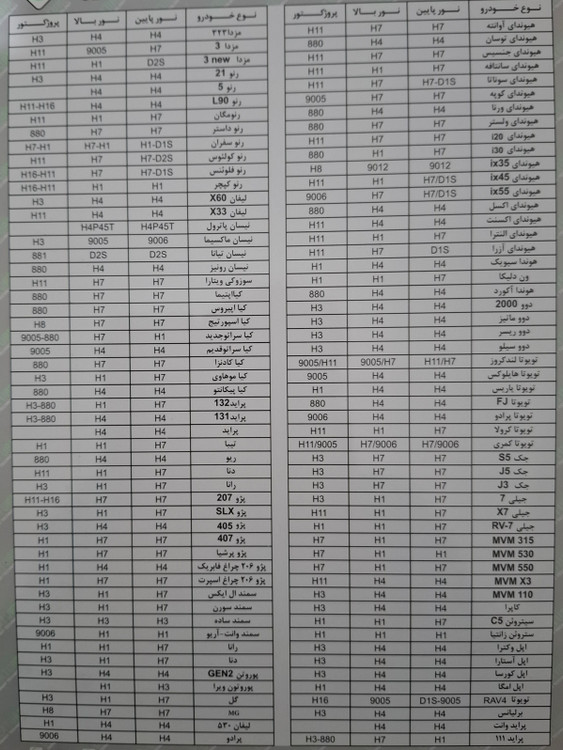 نوع خودرو نور پایین نور بالا پروژکتور
هیوندای آوانته H7 H7 H11
هیوندای توسان H4 H4 880
هیوندای جنسیس H7 H7 H11
هیوندای سانتافه H7 H7 H11
هیوندای سوناتا H7-D1S H7 H11
هیوندای کوپه H7 H7 9005
هیوندای ورنا H4 H4 880
هیوندای ولستر H7 H7 880
هیوندای i20 H7 H7 H11
هیوندای i30 H7 H1 880
هیوندای ix35 9012 9012 H8
هیوندای ix45 H7/D1S H1 H11
هیوندای ix55 H7/D1S H7 9006
هیوندای اکسل H4 H4 880
هیوندای اکسنت H4 H4 H11
هیوندای النترا H7 H1 H11
هیوندای آزرا D1S H7 H11
هوندا سیویک H4 H4 H1
ون دلیکا H7 H1 H1
هوندا آکورد H4 H4 880
دوو 2000 H4 H4 H3
دوو ماتیز H4 H4 H3
دوو ریسر H4 H4 H3
دوو سیلو H4 H4 H3
تویوتا لندکروز H11/H7 9005/H7 9005/H11
تویوتا هایلوکس H4 H4 9005
تویوتا یاریس H4 H4 H1
تویوتا FJ H4 H4 880
تویوتا پرادو H4 H4 9006
تویوتا کرولا H7 H1 H11
تویوتا کمری H7/9006 H7/9006 H11/9005
جک S5 H7 H7 H3
جک J5 H7 H7 H3
جک J3 H7 H7 H3
جیلی 7 H7 H1 H3
جیلی X7 H7 H1 H11
جیلی RV-7 H7 H1 H1
MVM 315 H7 H7 H7
MVM 530 H1 H1 H7
MVM 550 H7 H7 H7
MVM X3 H4 H4 H11
MVM 110 H4 H4 H3
کاپرا H4 H4 H3
سیتروئن C5 H7 H1 H1
ستروئن زانتیا H1 H1 H1
اپل وکترا H4 H4 H3
اپل آسترا H4 H4 H3
اپل کورسا H4 H4 H3
اپل امگا H4 H4 H1
تویوتا RAV4 D1S-9005 9005 H16
برلیانس H4 H4 H3
پراید وانت H4 H4
پراید ۱۱۱ H1 H7 H3-880
نوع خودرو نور پایین نور بالا پروژکتور
مزدا۳۲۳ H4 H4 H3
مزدا 3 H7 9005 H11
مزدا 3 new D2S H1 H11
رنو 21 H4 H4 H3
رنو 5 H4 H4
رنو L90 H4 H4 H11-H16
رنومگان H7 H1 H11
رنو داستر H7 H7 880
رنو سفران H1-D1S H7-H1 H7-H1
رنو کولئوس H7-D2S H7 H11
رنو فلوئنس H7-D1S H7 H16-H11
رنو کپچر H1 H1 H16-H11
لیفان X60 H4 H4 H3
لیفان X33 H4 H4 H11
نیسان پاترول H4P45T H4P45T
نیسان ماکسیما 9006 9005 H3
نیسان تیانا D2S D2S 881
نیسان رونیز H4 H4 880
سوزوکی ویتارا H7 H7 H11
کیااپتیما H7 H7 880
کیا اپیروس H7 H7 880
کیا اسپورتیج H7 H7 H8
کیا سراتوجدید H7 H1 9005-880
کیا سراتوقدیم H4 H4 9005
کیا کادنزا H7 H7 880
کیا موهاوی H7 H1 H3
کیا پیکانتو H4 H4 880
پراید132 H7 H1 H3-880
پراید131 H4 H4 H3-880
پراید H4 H4
تیبا H7 H1 H1
ریو H4 H4 880
دنا H7 H1 H11
رانا H7 H1 H3
پژو 207 H7 H7 H11-H16
پژو SLX H7 H1 H3
پژو 405 H4 H4 H3
پژو 407 H7 H7 H1
پژو پرشیا H7 H7 H1
پژو ۲۰۶ چراغ فابریک H4 H4 H1
پژو ۲۰۶ چراغ اسپرت H7 H7 H1
سمند ال ایکس H7 H1 H3
سمند سورن H7 H1 H3
سمند ساده H3 H3 H3
سمند وانت-آریو H1 H1 9006
رانا H7 H1 H1
دنا H7 H1 H3
پوروتن GEN2 H4 H4 H3
پوروتون ویرا H3 H1
گل H7 H4 H3
MG H7 H7 H8
لیفان ۵۳۰ H4 H4 H1
پرادو H4 H4 9006